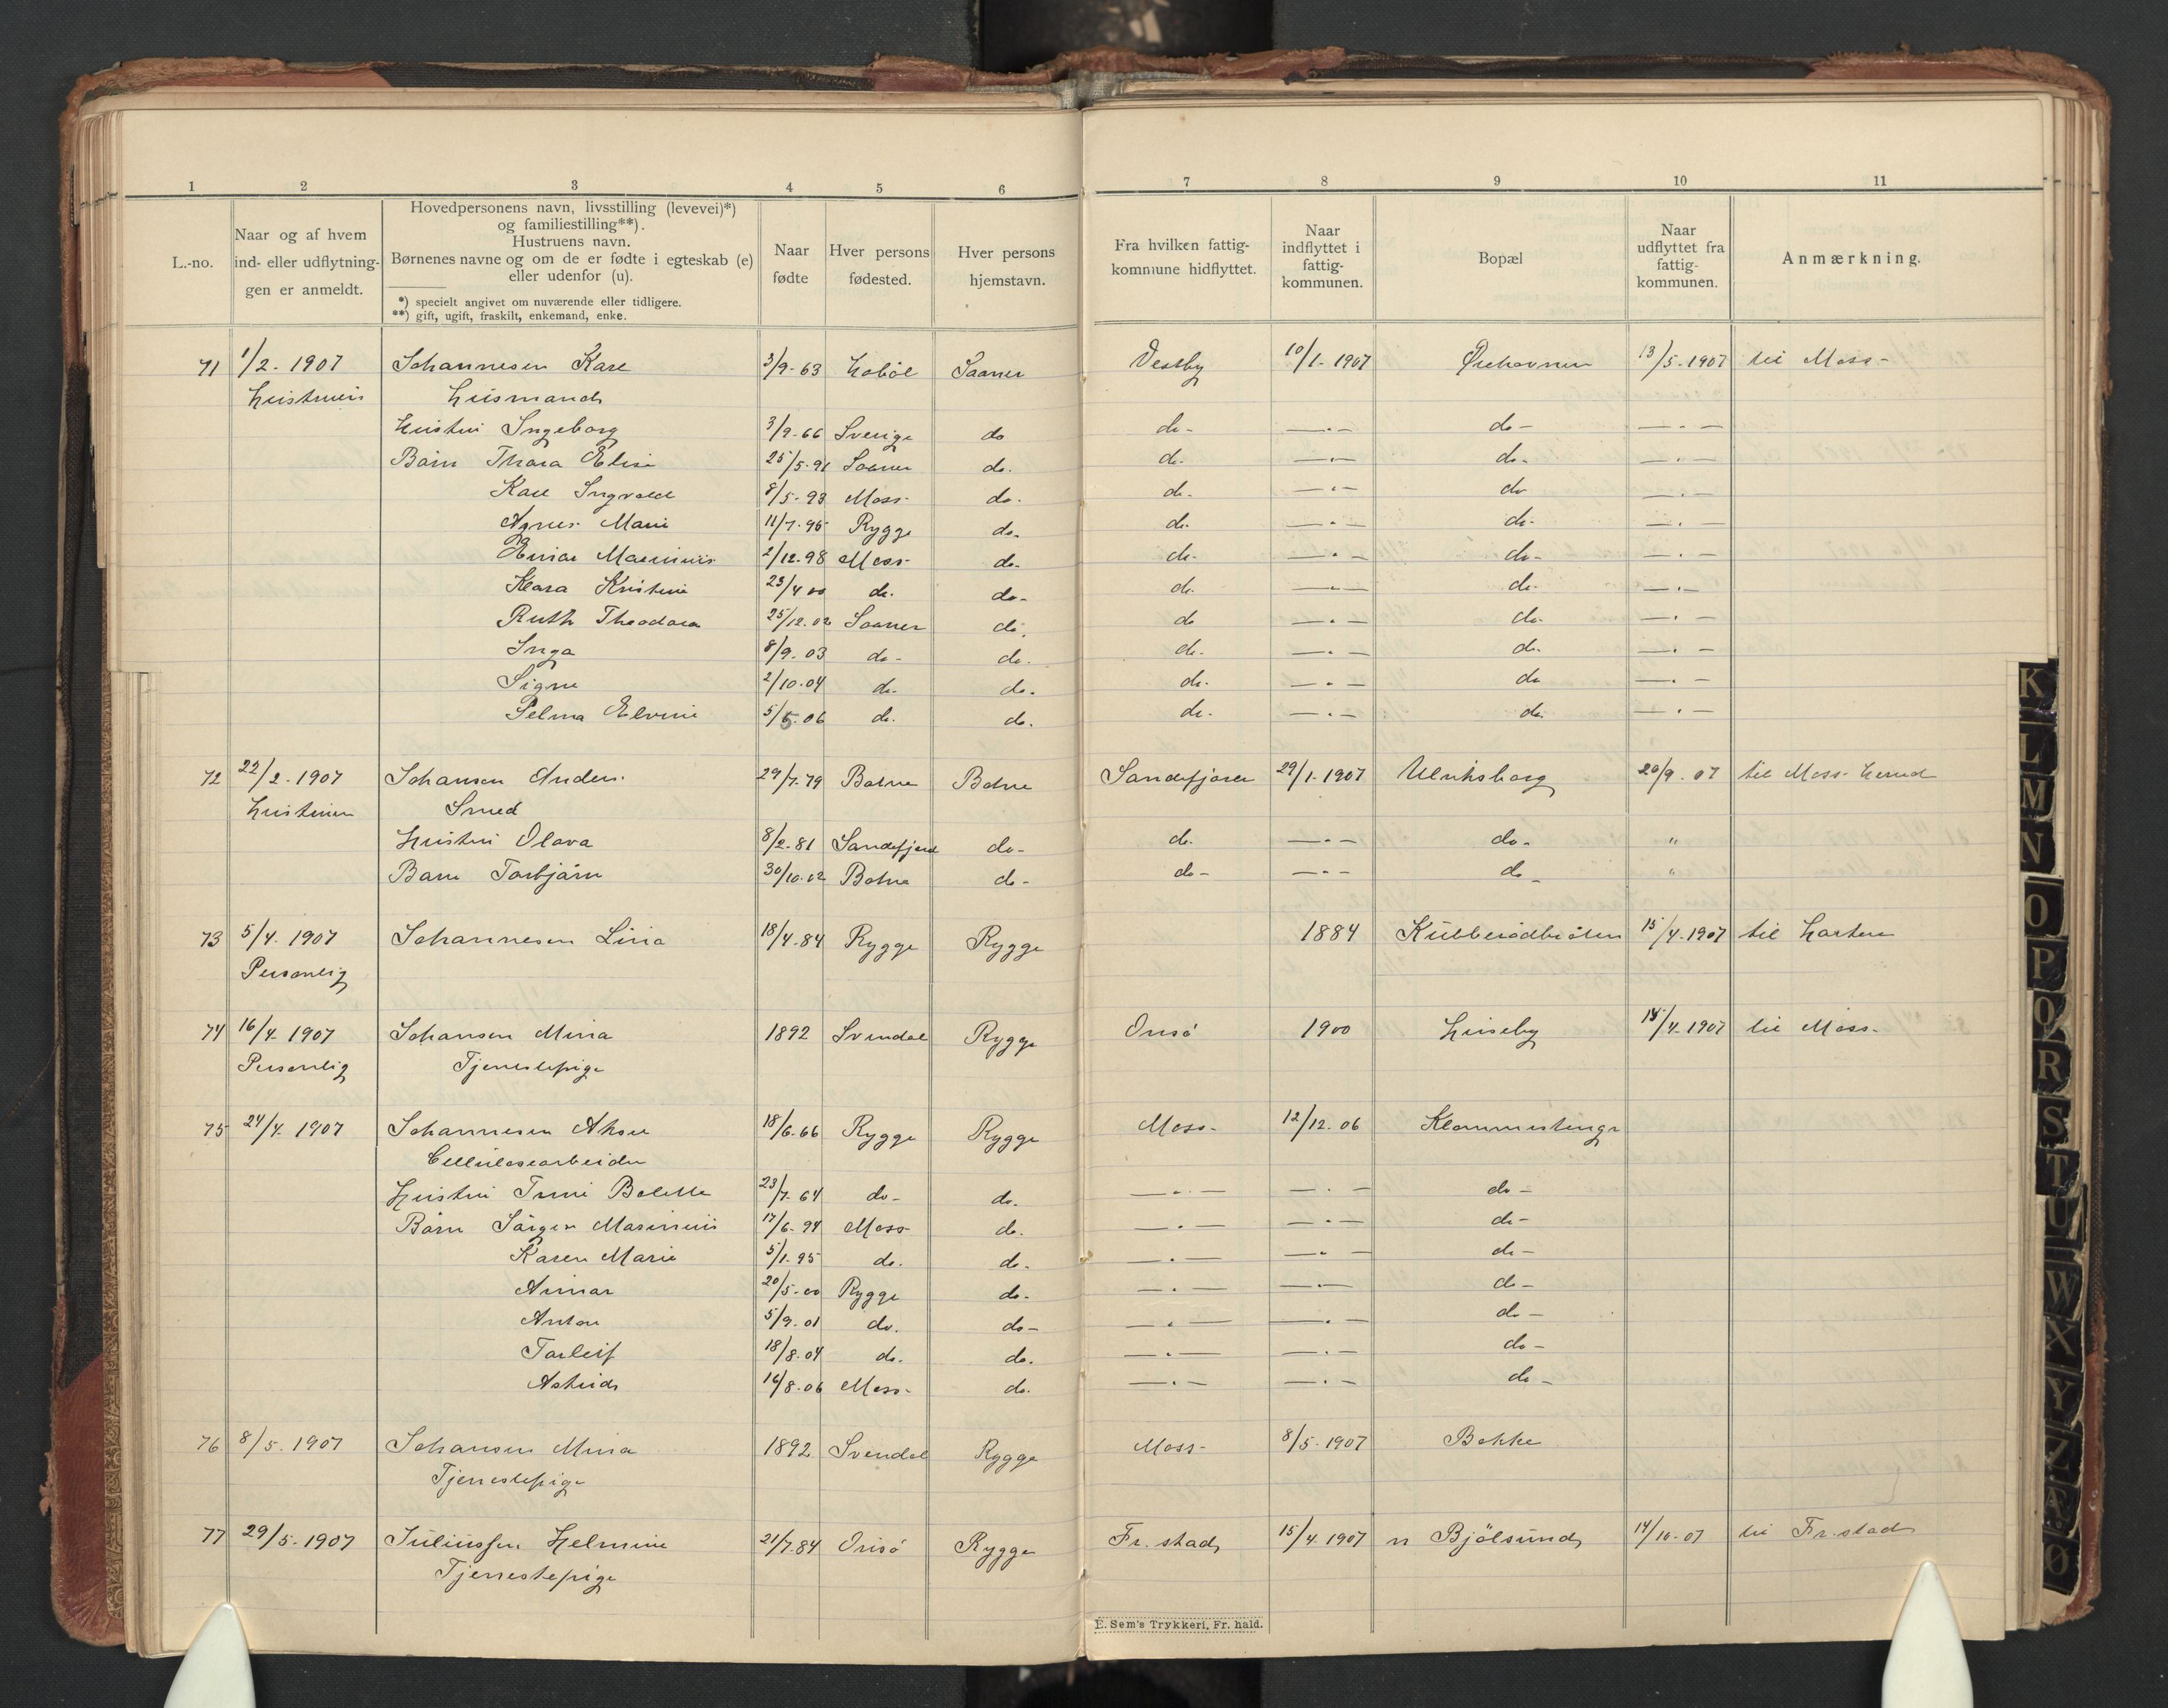 1 2 3 4 5 6 7 8 9 10 11
L.-no.
Naar og af hvem
ind- eller udflytnin-
gen er anmeldt.
Hovedpersonens navn, livsstilling (levevei)*)
og familiestilling**).
Hustruens navn.
Børnenes navne og om de er fødte i egteskab (e)
eller udenfor (u).
*) specielt angivet om nuværende eller tidligere.
**) gift, ugift, fraskilt, enkemand, enke.
Naar
fødte
Hver persons
fødested.
Hver persons
hjemstavn.
Fra hvilken fattig-
kommune hidflyttet.
Naar
indflyttet i
fattig-
kommunen.
Bopæl
Naar
udflyttet fra
fattig-
kommunen.
Anmærkning.
71 1/2-1907 Johannesen Karl 3/9-63 Hobøl Saaner Vestby 10/1-1907 Ørehavnen 13/5-1907 til Moss-
Hustruen Husmand
Hustru Ingeborg 3/9-66 Sverige do do- —·— do- —·—
Børn Thora Elise 25/5-91 Saaner do. do. —·— do. —·—
Karl Ingvald 8/5-93 Moss- do. do. —·— do —·—
Agnes Marie 11/7-95 Rygge do. do. —·— do. —·—
Einar Marinius 2/12-98 Moss- do. do. —·— do- —·—
Klara Kristine 23/4 00 do. do- do. —·— do. —·—
Ruth Theodora 25/12.02 Saaner do. do —·— do. —·—
Inga 8/9.03 do- do. do. —·— do. —·—
Signe 2/10-04 do. do. do. —·— do —·—
Selma Elvine 5/5-06 do. do. do. —·— do. —·—
72 22/2-1907 Johansen Anders 29/7-79 Botne Botne Sandefjord 29/1-1907 Ulriksborg 20/9-07 til Moss-
Hustruen Smed
Hustru Olava 8/2-81 Sandefjord do- do. —·— do. "
Barn Torbjørn 30/10.02 Botne do- do- —·— do- "
73 5/4.1907 Johannesen Lina 18/4-84 Rygge Rygge 1884 15/4-1907 til Horten
Personlig
74 16/4-1907 Johansen Mina 1892 Svindal Rygge Onsø 1900 Huseby 15/4-1907 til Moss-
Personlig Tjenestepige
75 24/4-1907 Johannesen 18/6-66 Rygge Rygge Moss- 12/12.06
Cellulosearbeider
Hustru Bolette 23/7-64 do- do. —·— —·— do-
Børn Jørgen Marinius 17/6-94 Moss do. —·— —·— do-
Karen Marie 5/1-95 do. do. —·— —·— do-
20/5-00 Rygge do. —·— —·— do-
Anton 5/9.01 do. do- —·— —·— do-
Torleif 18/8-04 do. do. —·— —·— do-
Astrid 16/8-06 Moss- do. —·— —·— do-
76 8/5.1907 Johansen Mina 1892 Svendal Rygge Moss- 8/5-1907 Bakke
Tjenestepige
77 29/5-1907 Juliussen Helmine 21/7.84 Onsø Rygge Fr. stad 15/4-1907 n Bjølsund 14/10-07 til Fr. stad
Tjenestepige
E. Sem's Trykkeri, Fr. hald.
K
L
M
N
O
P
Q
R
S
T
U
W
X
Y
Z
Æ
Ø